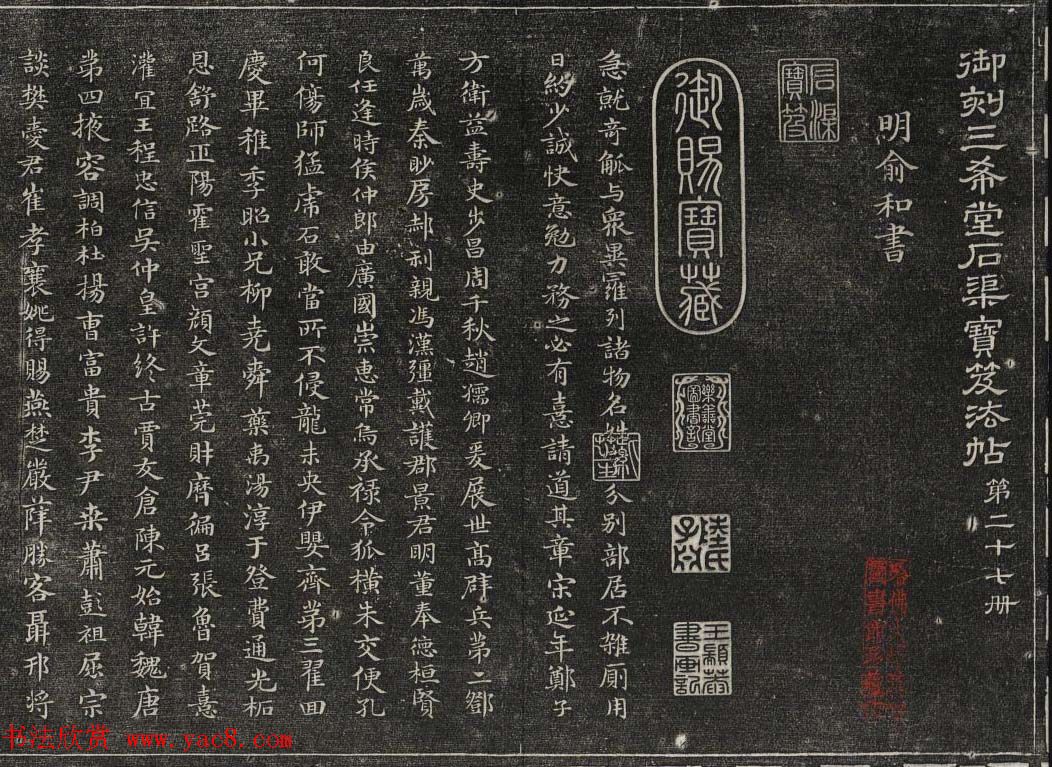 御刻三希堂石渠寶笈法帖 第二十七册
明俞和書
石渠寶笈
御賜寶藏
急就奇觚与衆異羅列諸物名姓字分别部居不雜厠用
日約少誠快意勉力務之必有憙請道其章宋延年鄭子
方衛益壽史步昌周千秋趙孺卿爰展世高辟兵第二鄧
萬歲秦眇房郝利親馮漢彊戴護郡景君明董奉德桓賢
良任逢時侯仲郎由廣國崇惠常烏承禄令狐橫朱交便孔
何傷師猛虎石敢當所不侵龍未央伊嬰齊第三翟回
慶畢稚季昭小兄柳堯舜藥禹湯淳于登費通光柘
恩舒路正陽霍聖宮顔文章莞財磨徧呂張魯賀憙
灌宜王程忠信吳仲皇許終古賈友倉陳元始韓魏唐
第四掖容調柏杜楊曹富貴李尹桒蕭彭祖屈宗
談樊愛君崔孝襄姚得賜燕楚嚴薛勝客聶邘将
书法欣赏 www.yac8.com